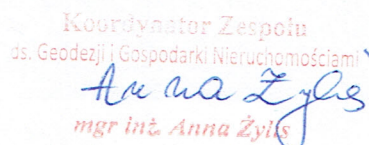 Koordynator Zespołu
ds. Geodezji i Gospodarki Nieruchomościami
Anna Żylis
mgr inż. Anna Żylis